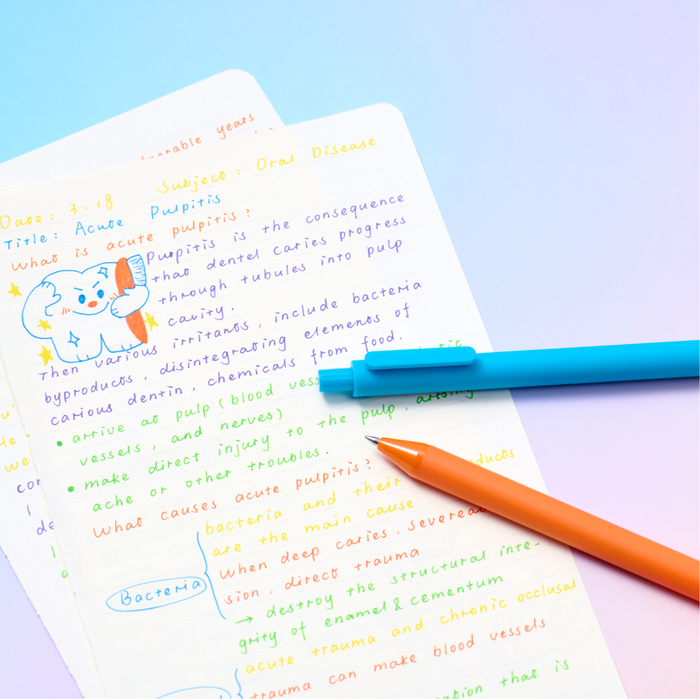 years
Date: 3.18 Subject: Oral Disease
Title: Acute Pulpitis
What is acute pulpitis?
Pulpitis is the consequence
that dentel caries progress
through tubules into pulp
cavity.
Then various irritants, include bacteria
byproducts, disintegrating elements of
carious dentin, chemicals from food.
• arrive at pulp (blood
vessels, and nerves)
• make direct injury to the pulp,
ache or other troubles.
What causes acute pulpitis?
bacteria and their
are the main cause
When deep caries,
sion, direct trauma
Bacteria
→ destroy the structural inte-
grity of enamel & cementum
acute trauma and chronic occlusal
trauma can make blood vessels
that is
we